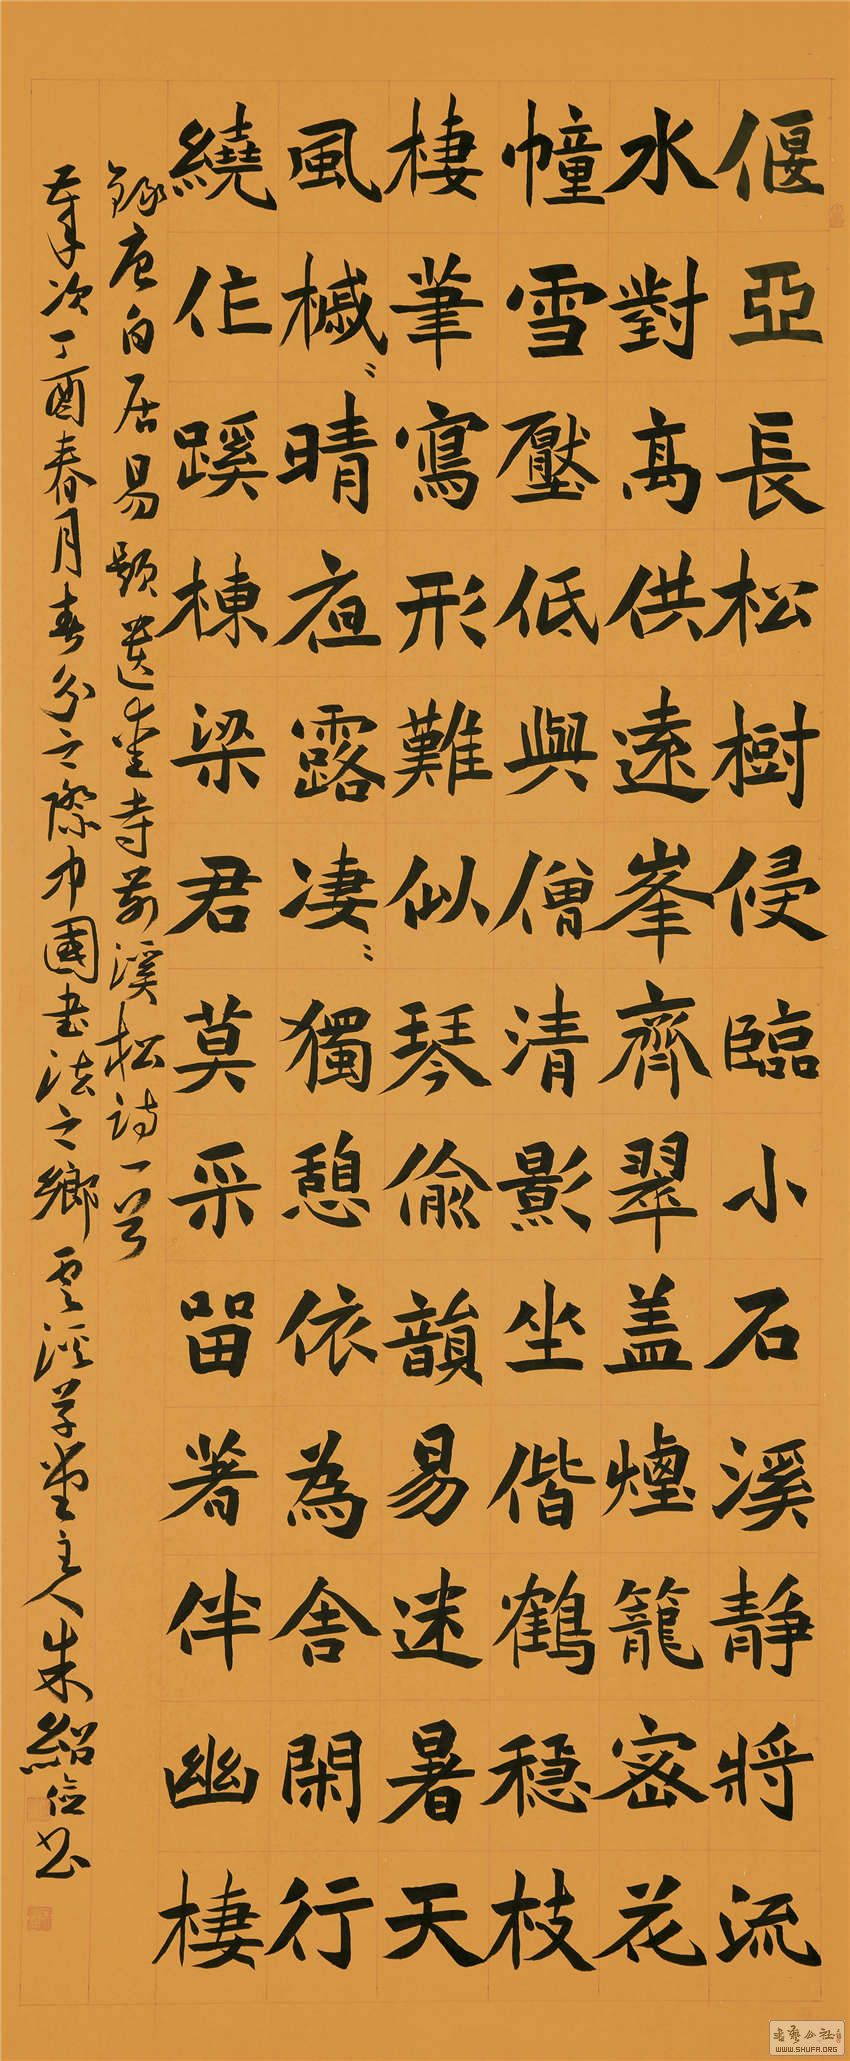 偃亞長松樹侵臨小石溪静將流
水對高供遠峯齊翠盖煙籠密花
幢雪壓低與僧清影坐偕鶴穩枝
棲筆寫形難似琴偷韻易迷暑天
風槭〻晴夜露凄〻獨憩依為舍閑行
繞作蹊棟梁君莫采留著伴幽棲
錄唐白居易題遺愛寺前溪松詩一首
嵗次丁酉春月春分之際中國書法之鄉雲溪草堂主人朱紹俭书
書藝公社
WWW.SHUFA.ORG